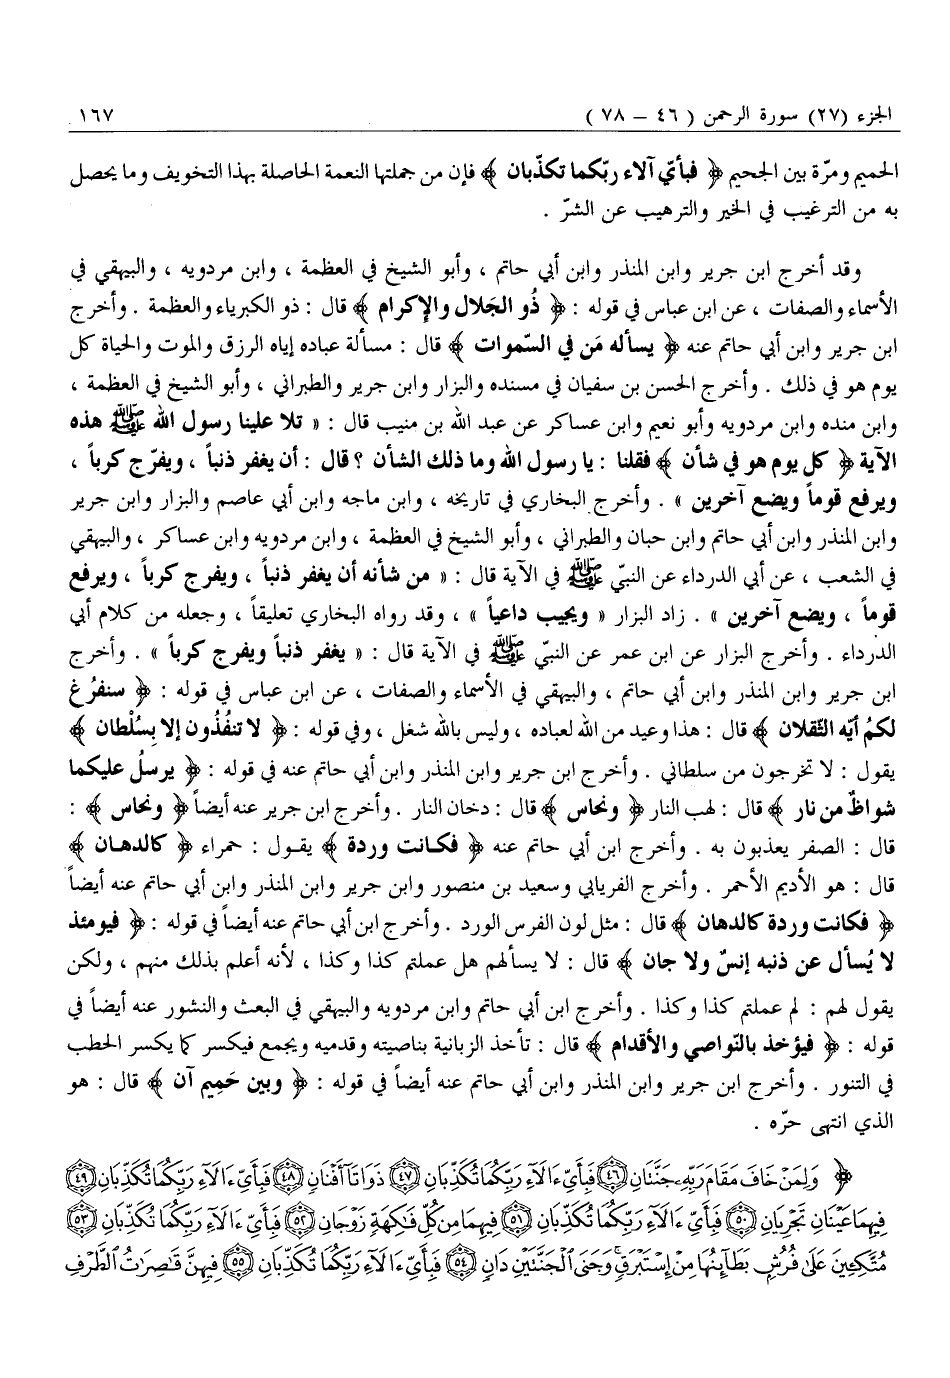 الجزء (٢٧) سورة الرحمن ( ٤٦ – ٧٨ ) ١٦٧
الحميم ومرّة بين الجحيم ﴿ فبأيّ آلاء ربّكما تكذّبان ﴾ فإن من جملتها النعمة الحاصلة بهذا التخويف وما يحصل
به من الترغيب في الخير والترهيب عن الشرّ .
وقد أخرج ابن جرير وابن المنذر وابن أبي حاتم ، وأبو الشيخ في العظمة ، وابن مردويه ، والبيهقي في
الأسماء والصفات ، عن ابن عباس في قوله : ﴿ ذُو الجَلال والإكرام ﴾ قال : ذو الكبرياء والعظمة . وأخرج
ابن جرير وابن أبي حاتم عنه ﴿ يسأله مَن في السّموات ﴾ قال : مسألة عباده إياه الرزق والموت والحياة كل
يوم هو في ذلك . وأخرج الحسن بن سفيان في مسنده والبزار وابن جرير والطبراني ، وأبو الشيخ في العظمة ،
وابن منده وابن مردويه وأبو نعيم وابن عساكر عن عبد الله بن منيب قال : « تلا علينا رسول الله ﷺ هذه
الآية ﴿ كل يوم هو في شأن ﴾ فقلنا : يا رسول الله وما ذلك الشأن ؟ قال : أن يغفر ذنباً ، ويفرّج كرباً ،
ويرفع قوماً ويضع آخرين » . وأخرج البخاري في تاريخه ، وابن ماجه وابن أبي عاصم والبزار وابن جرير
وابن المنذر وابن أبي حاتم وابن حبان والطبراني ، وأبو الشيخ في العظمة ، وابن مردويه وابن عساكر ، والبيهقي
في الشعب ، عن أبي الدرداء عن النبيّ ﷺ في الآية قال : « من شأنه أن يغفر ذنباً ، ويفرج كرباً ، ويرفع
قوماً ، ويضع آخرين » . زاد البزار « ويجيب داعياً » ، وقد رواه البخاري تعليقاً ، وجعله من كلام أبي
الدرداء . وأخرج البزار عن ابن عمر عن النبيّ ﷺ في الآية قال : « يغفر ذنباً ويفرج كرباً » . وأخرج
ابن جرير وابن المنذر وابن أبي حاتم ، والبيهقي في الأسماء والصفات ، عن ابن عباس في قوله : ﴿ سنفرُغ
لكمُ أيّه الثّقلان ﴾ قال : هذا وعيد من الله لعباده ، وليس بالله شغل ، وفي قوله : ﴿ لا تنفُذُون إلا بِسُلْطان ﴾
يقول : لا تخرجون من سلطاني . وأخرج ابن جرير وابن المنذر وابن أبي حاتم عنه في قوله : ﴿ يرسلُ عليكما
شواظٌ من نار ﴾ قال : لهب النار ﴿ ونحاس ﴾ قال : دخان النار . وأخرج ابن جرير عنه أيضاً ﴿ ونحاس ﴾ :
قال : الصفر يعذبون به . وأخرج ابن أبي حاتم عنه ﴿ فكانت وردة ﴾ يقول : حمراء ﴿ كالدهان ﴾
قال : هو الأديم الأحمر . وأخرج الفريابي وسعيد بن منصور وابن جرير وابن المنذر وابن أبي حاتم عنه أيضاً
﴿ فكانت وردة كالدهان ﴾ قال : مثل لون الفرس الورد . وأخرج ابن أبي حاتم عنه أيضاً في قوله : ﴿ فيومئذ
لا يُسأل عن ذنبه إنسٌ ولا جان ﴾ قال : لا يسألهم هل عملتم كذا وكذا ، لأنه أعلم بذلك منهم ، ولكن
يقول لهم : لم عملتم كذا وكذا . وأخرج ابن أبي حاتم وابن مردويه والبيهقي في البعث والنشور عنه أيضاً في
قوله : ﴿ فيؤخذ بالنّواصي والأقدام ﴾ قال : تأخذ الزبانية بناصيته وقدميه ويجمع فيكسر كما يكسر الحطب
في التنور . وأخرج ابن جرير وابن المنذر وابن أبي حاتم عنه أيضاً في قوله : ﴿ وبين حَمِيم آن ﴾ قال : هو
الذي انتهى حرّه .
﴿ وَلِمَنْ خَافَ مَقَامَ رَبِّهِۦ جَنَّتَانِ ٤٦ فَبِأَيِّ ءَالَآءِ رَبِّكُمَا تُكَذِّبَانِ ٤٧ ذَوَاتَآ أَفْنَانٍ ٤٨ فَبِأَيِّ ءَالَآءِ رَبِّكُمَا تُكَذِّبَانِ ٤٩
فِيهِمَا عَيْنَانِ تَجْرِيَانِ ٥٠ فَبِأَيِّ ءَالَآءِ رَبِّكُمَا تُكَذِّبَانِ ٥١ فِيهِمَا مِن كُلِّ فَٰكِهَةٍ زَوْجَانِ ٥٢ فَبِأَيِّ ءَالَآءِ رَبِّكُمَا تُكَذِّبَانِ ٥٣
مُتَّكِـِٔينَ عَلَىٰ فُرُشٍ بَطَآئِنُهَا مِنْ إِسْتَبْرَقٍ ۚ وَجَنَى ٱلْجَنَّتَيْنِ دَانٍ ٥٤ فَبِأَيِّ ءَالَآءِ رَبِّكُمَا تُكَذِّبَانِ ٥٥ فِيهِنَّ قَٰصِرَٰتُ ٱلطَّرْفِ